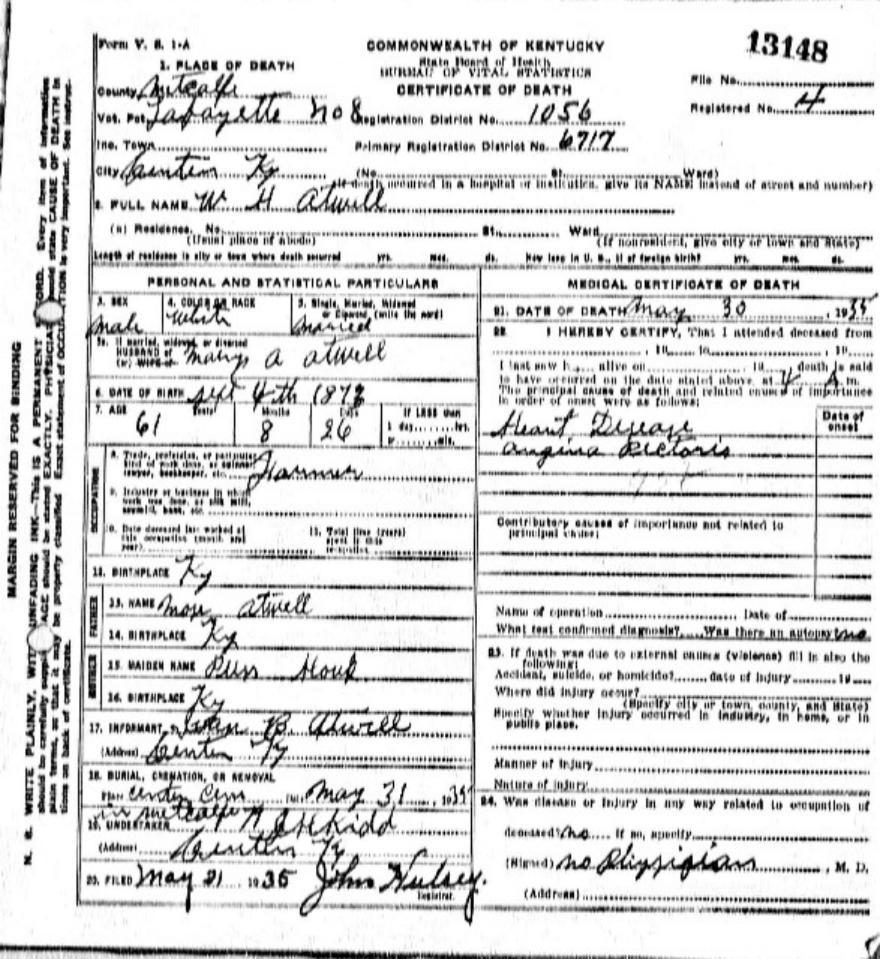 Form V. S. 1-A
COMMONWEALTH OF KENTUCKY
State Board of Health
BUREAU OF VITAL STATISTICS
CERTIFICATE OF DEATH
13148
File No.
Registered No. 4
1. PLACE OF DEATH
County Metcalfe
Vot. Pct. Lafayette No 8
Registration District No. 1056
Inc. Town
Primary Registration District No. 6717
City Center Ky
(No. St. Ward)
(If death occurred in a hospital or institution, give its NAME instead of street and number)
2. FULL NAME W H Atwell
(a) Residence. No. St. Ward
(Usual place of abode)
(If nonresident, give city or town and State)
Length of residence in city or town where death occurred yrs. mos. ds. How long in U. S., if of foreign birth? yrs. mos. ds.
PERSONAL AND STATISTICAL PARTICULARS
3. SEX
male
4. COLOR OR RACE
White
5. Single, Married, Widowed
or Divorced (write the word)
married
5a. If married, widowed, or divorced
HUSBAND of
(or) WIFE of Mary A Atwell
6. DATE OF BIRTH Sept 4th 1873
7. AGE
61 Years
8 Months
26 Days
If LESS than
1 day, hrs.
or min.
OCCUPATION
8. Trade, profession, or particular
kind of work done, as spinner,
sawyer, bookkeeper, etc. Farmer
9. Industry or business in which
work was done, as silk mill,
sawmill, bank, etc.
10. Date deceased last worked at
this occupation (month and
year)
11. Total time (years)
spent in this
occupation
12. BIRTHPLACE Ky
FATHER
13. NAME Atwell
14. BIRTHPLACE Ky
MOTHER
15. MAIDEN NAME
16. BIRTHPLACE Ky
17. INFORMANT B. Atwell
(Address) Center Ky
18. BURIAL, CREMATION, OR REMOVAL
Place Center Cem Date May 31, 1935
in Metcalfe
19. UNDERTAKER
(Address) Center Ky
20. FILED May 31 1935 John Hulsey.
Registrar.
MEDICAL CERTIFICATE OF DEATH
21. DATE OF DEATH May 30, 1935
22. I HEREBY CERTIFY, That I attended deceased from
, 19 to , 19
I last saw h alive on 19 death is said
to have occurred on the date stated above, at 4 A m.
The principal cause of death and related causes of importance
in order of onset were as follows:
Date of
onset
Heart Disease
Angina Pectoris
Contributory causes of importance not related to
principal cause:
Name of operation Date of
What test confirmed diagnosis? Was there an autopsy no
23. If death was due to external causes (violence) fill in also the
following:
Accident, suicide, or homicide? date of injury 19
Where did injury occur?
(Specify city or town, county, and State)
Specify whether injury occurred in industry, in home, or in
public place.
Manner of injury
Nature of injury
24. Was disease or injury in any way related to occupation of
deceased? no If so, specify
(Signed) no Physician, M. D.
(Address)
MARGIN RESERVED FOR BINDING